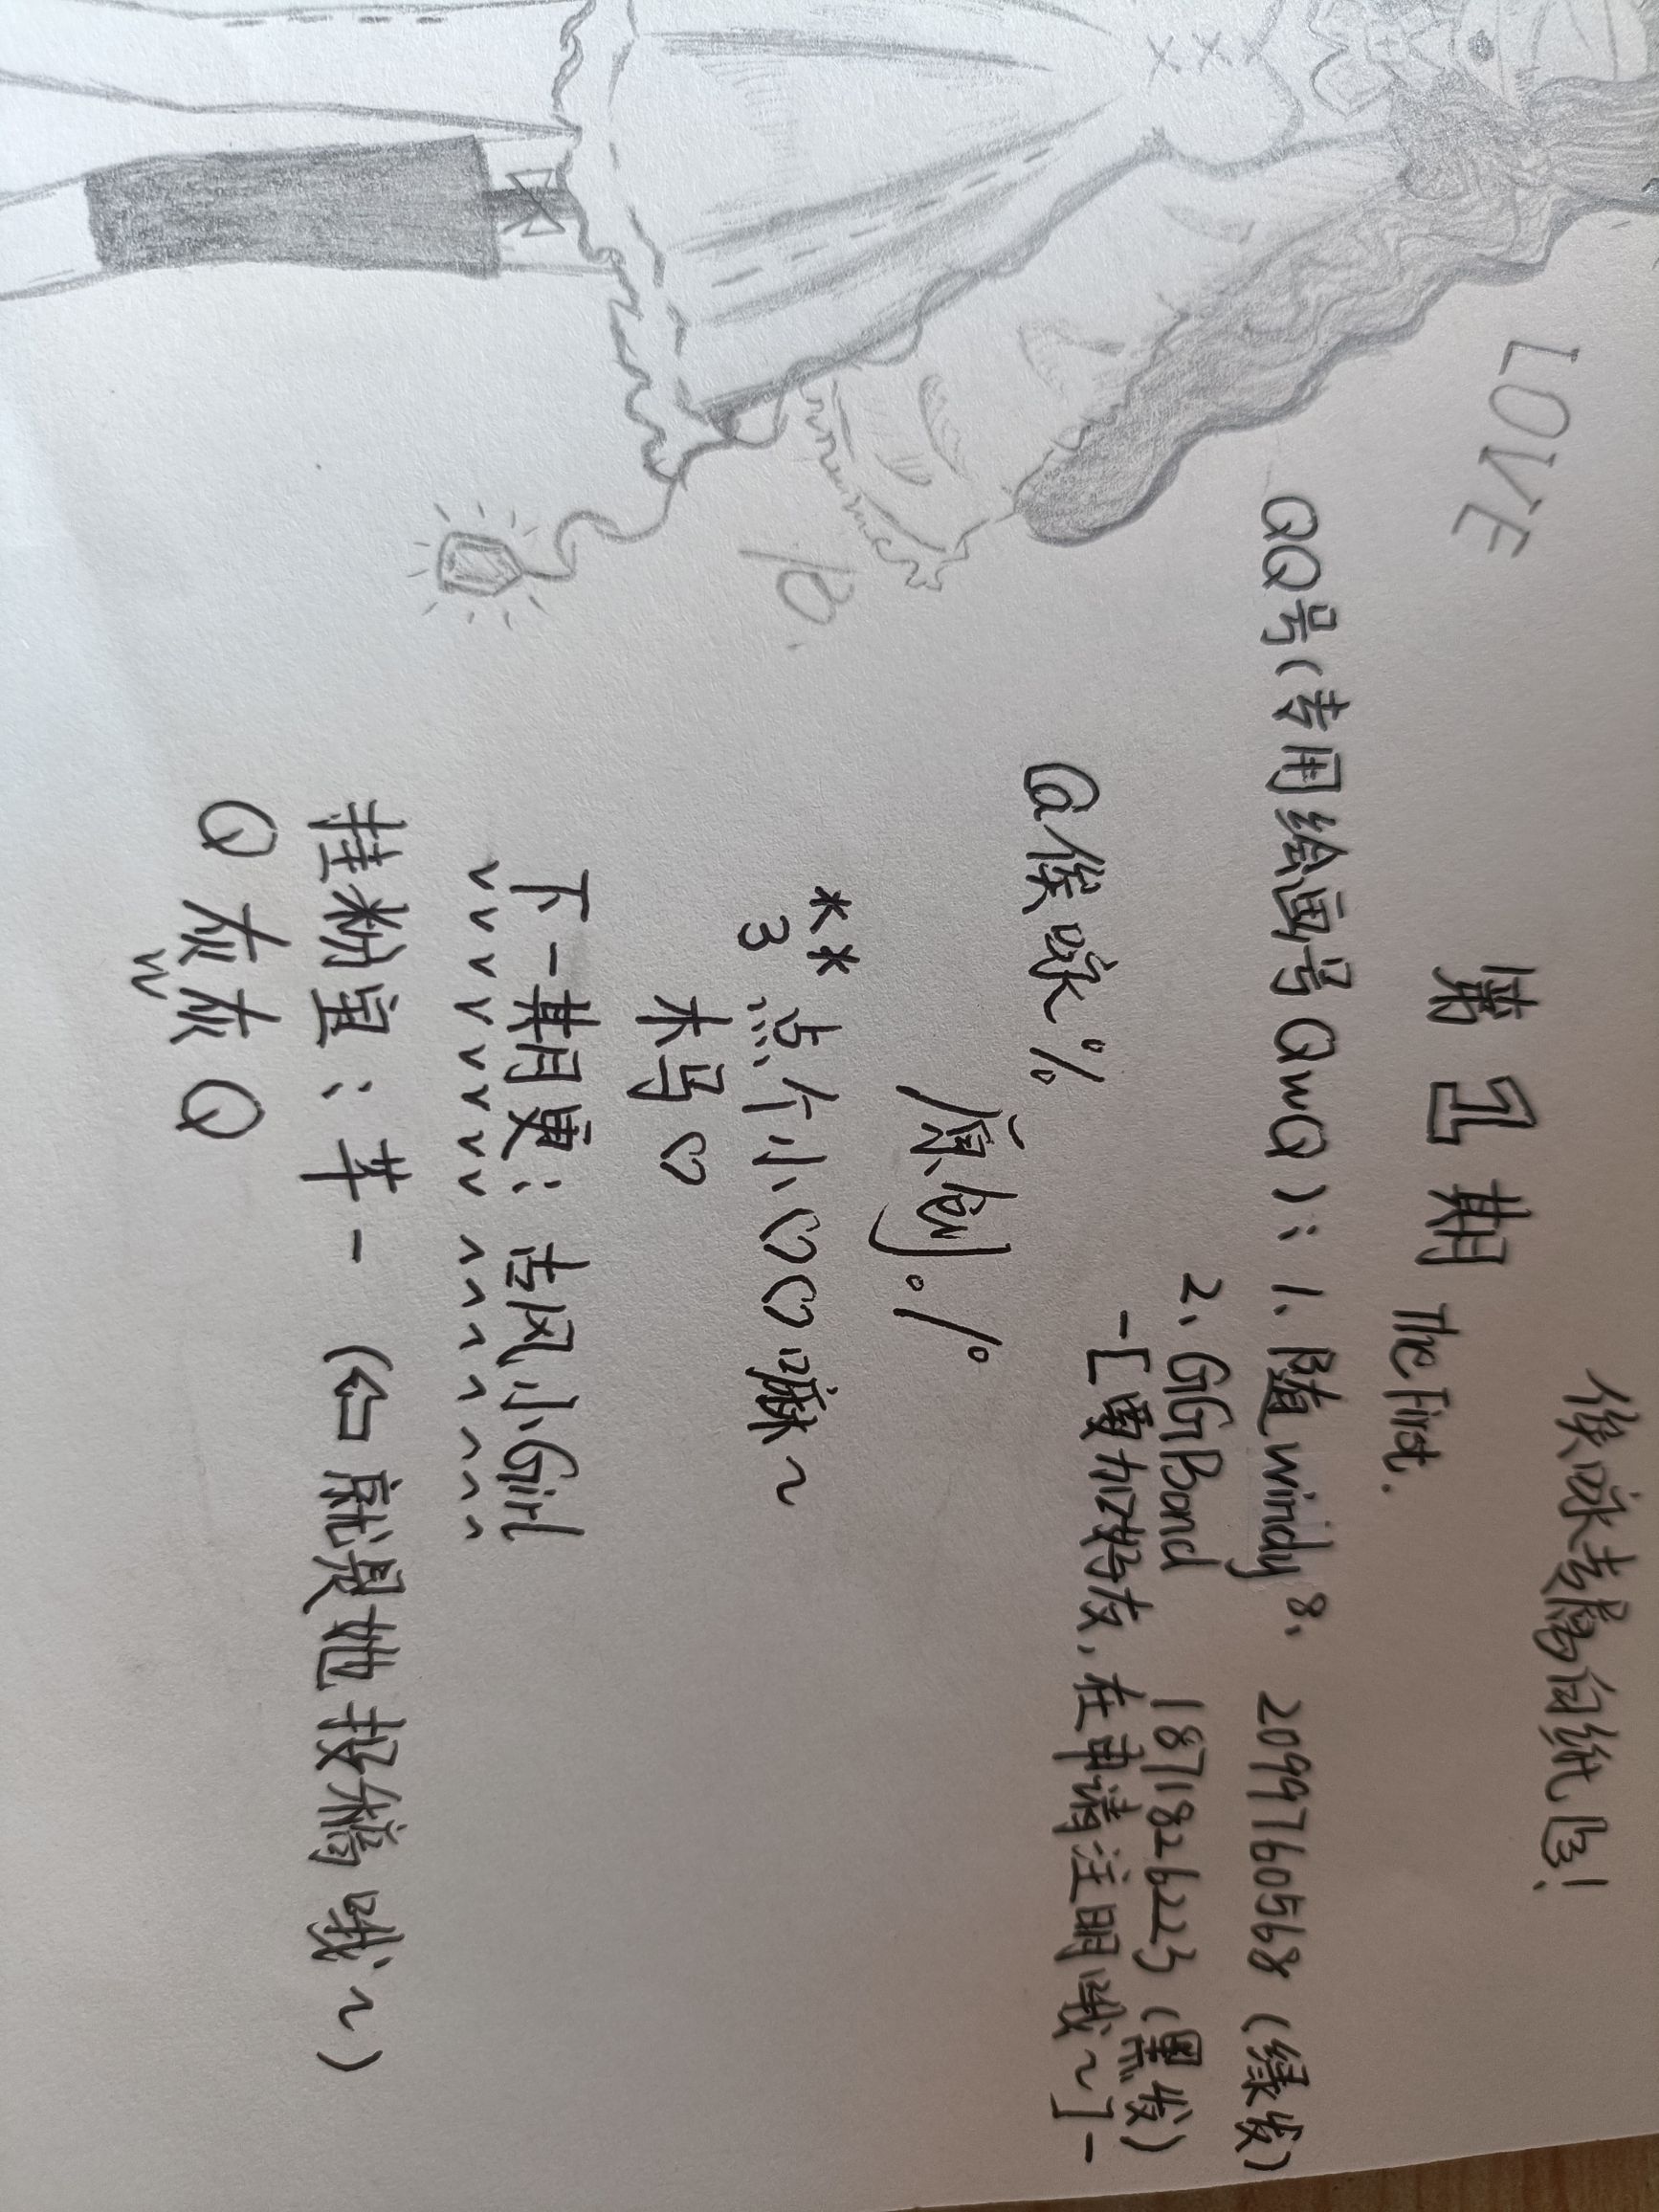 俟咏专属句纸巾!
第1期
The First.
LOVE
QQ号(专用绘画号QwQ):1、随windy°。 2099760568(绿发)
2、GGBond 1871826223(黑发)
-[要加好友,在申请注明哦~]-
@俟咏%
原创°/°
**点个小♡♡嘛~
3
木马♡
下一期更:古风小Girl
ˇˇˇˇˇˇˇˇ^^^^^^^
挂粉宣:芊一(⇦就是她投稿哦~)
Q灰灰Q
w